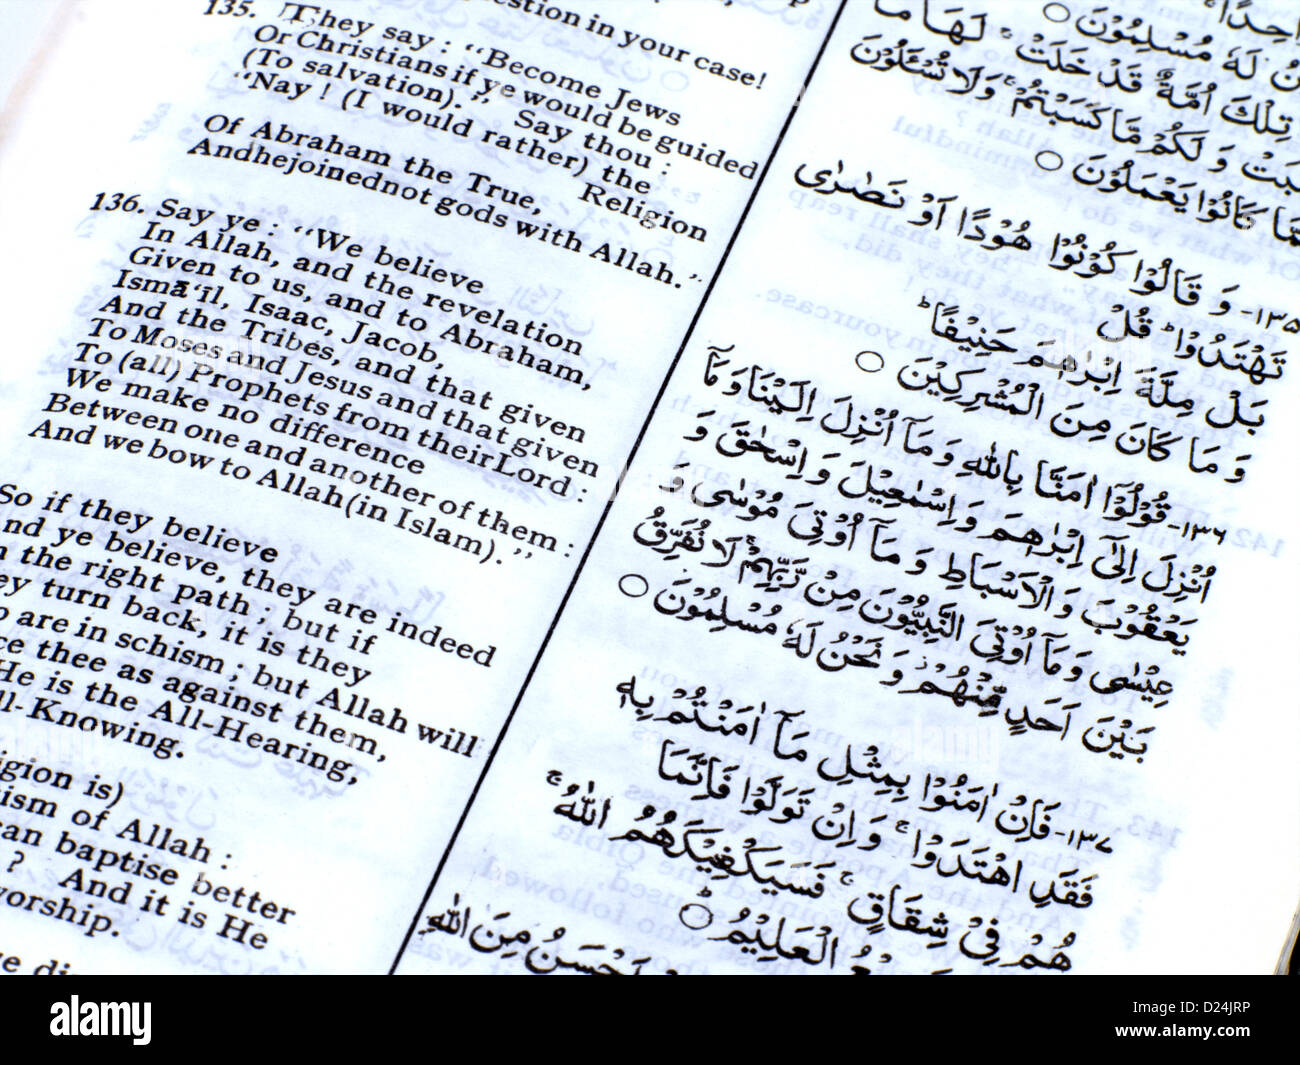 estion in your case!
135. They say : "Become Jews
Or Christians if ye would be guided
(To salvation)." Say thou :
"Nay ! (I would rather) the
Religion
Of Abraham the True,
Andhejoinednot gods with Allah."
136. Say ye : "We believe
In Allah, and the revelation
Given to us, and to Abraham,
Ismā‘īl, Isaac, Jacob,
And the Tribes, and that given
To Moses and Jesus and that given
To (all) Prophets from their Lord :
We make no difference
Between one and another of them :
And we bow to Allah (in Islam)."
So if they believe
nd ye believe, they are indeed
the right path ; but if
ey turn back, it is they
o are in schism ; but Allah will
ce thee as against them,
He is the All-Hearing,
ll-Knowing.
igion is)
ism of Allah :
can baptise better
? And it is He
worship.
لَهٗ مُسْلِمُوْنَ ○
تِلْكَ اُمَّةٌ قَدْ خَلَتْ ۚ لَهَا مَا
وَلَكُمْ مَّا كَسَبْتُمْ ۚ وَلَا تُسْـَٔلُوْنَ
كَانُوْا يَعْمَلُوْنَ ○
١٣٥- وَ قَالُوْا كُوْنُوْا هُوْدًا اَوْ نَصٰرٰى
تَهْتَدُوْا ؕ قُلْ
بَلْ مِلَّةَ اِبْرٰهٖمَ حَنِيْفًا ؕ
وَ مَا كَانَ مِنَ الْمُشْرِكِيْنَ ○
١٣٦- قُوْلُوْٓا اٰمَنَّا بِاللّٰهِ وَ مَآ اُنْزِلَ اِلَيْنَا وَ مَآ
اُنْزِلَ اِلٰٓى اِبْرٰهٖمَ وَ اِسْمٰعِيْلَ وَ اِسْحٰقَ وَ
يَعْقُوْبَ وَ الْاَسْبَاطِ وَ مَآ اُوْتِيَ مُوْسٰى وَ
عِيْسٰى وَ مَآ اُوْتِيَ النَّبِيُّوْنَ مِنْ رَّبِّهِمْ ۚ لَا نُفَرِّقُ
بَيْنَ اَحَدٍ مِّنْهُمْ ۖ وَ نَحْنُ لَهٗ مُسْلِمُوْنَ ○
١٣٧- فَاِنْ اٰمَنُوْا بِمِثْلِ مَآ اٰمَنْتُمْ بِهٖ
فَقَدِ اهْتَدَوْا ۚ وَ اِنْ تَوَلَّوْا فَاِنَّمَا
هُمْ فِيْ شِقَاقٍ ۚ فَسَيَكْفِيْكَهُمُ اللّٰهُ ۚ
الْعَلِيْمُ ○ ؕ
اَحْسَنُ مِنَ اللّٰهِ
alamy
Image ID: D24JRP
www.alamy.com